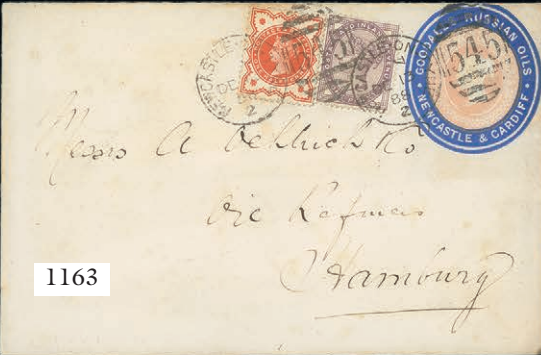 GOODA RUSSIAN OILS
NEWCASTLE & CARDIFF
545
NEWCASTLE-ON
DE
2
Messrs A Oehlrich & Co
Oil Refiners
Hamburg
1163